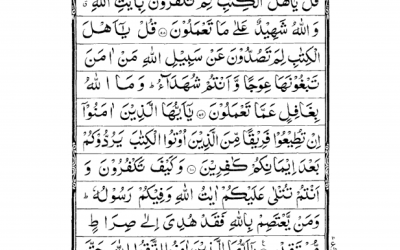 قُلْ يٰٓاَهْلَ الْكِتٰبِ لِمَ تَكْفُرُوْنَ بِاٰيٰتِ اللّٰهِ
وَاللّٰهُ شَهِيْدٌ عَلٰى مَا تَعْمَلُوْنَ ۞ قُلْ يٰٓاَهْلَ
الْكِتٰبِ لِمَ تَصُدُّوْنَ عَنْ سَبِيْلِ اللّٰهِ مَنْ اٰمَنَ
تَبْغُوْنَهَا عِوَجًا وَّاَنْتُمْ شُهَدَآءُ ؕ وَمَا اللّٰهُ
بِغَافِلٍ عَمَّا تَعْمَلُوْنَ ۞ يٰٓاَيُّهَا الَّذِيْنَ اٰمَنُوْٓا
اِنْ تُطِيْعُوْا فَرِيْقًا مِّنَ الَّذِيْنَ اُوْتُوا الْكِتٰبَ يَرُدُّوْكُمْ
بَعْدَ اِيْمَانِكُمْ كٰفِرِيْنَ ۞ وَكَيْفَ تَكْفُرُوْنَ وَ
اَنْتُمْ تُتْلٰى عَلَيْكُمْ اٰيٰتُ اللّٰهِ وَفِيْكُمْ رَسُوْلُهٗ ؕ
وَمَنْ يَّعْتَصِمْ بِاللّٰهِ فَقَدْ هُدِيَ اِلٰى صِرَاطٍ